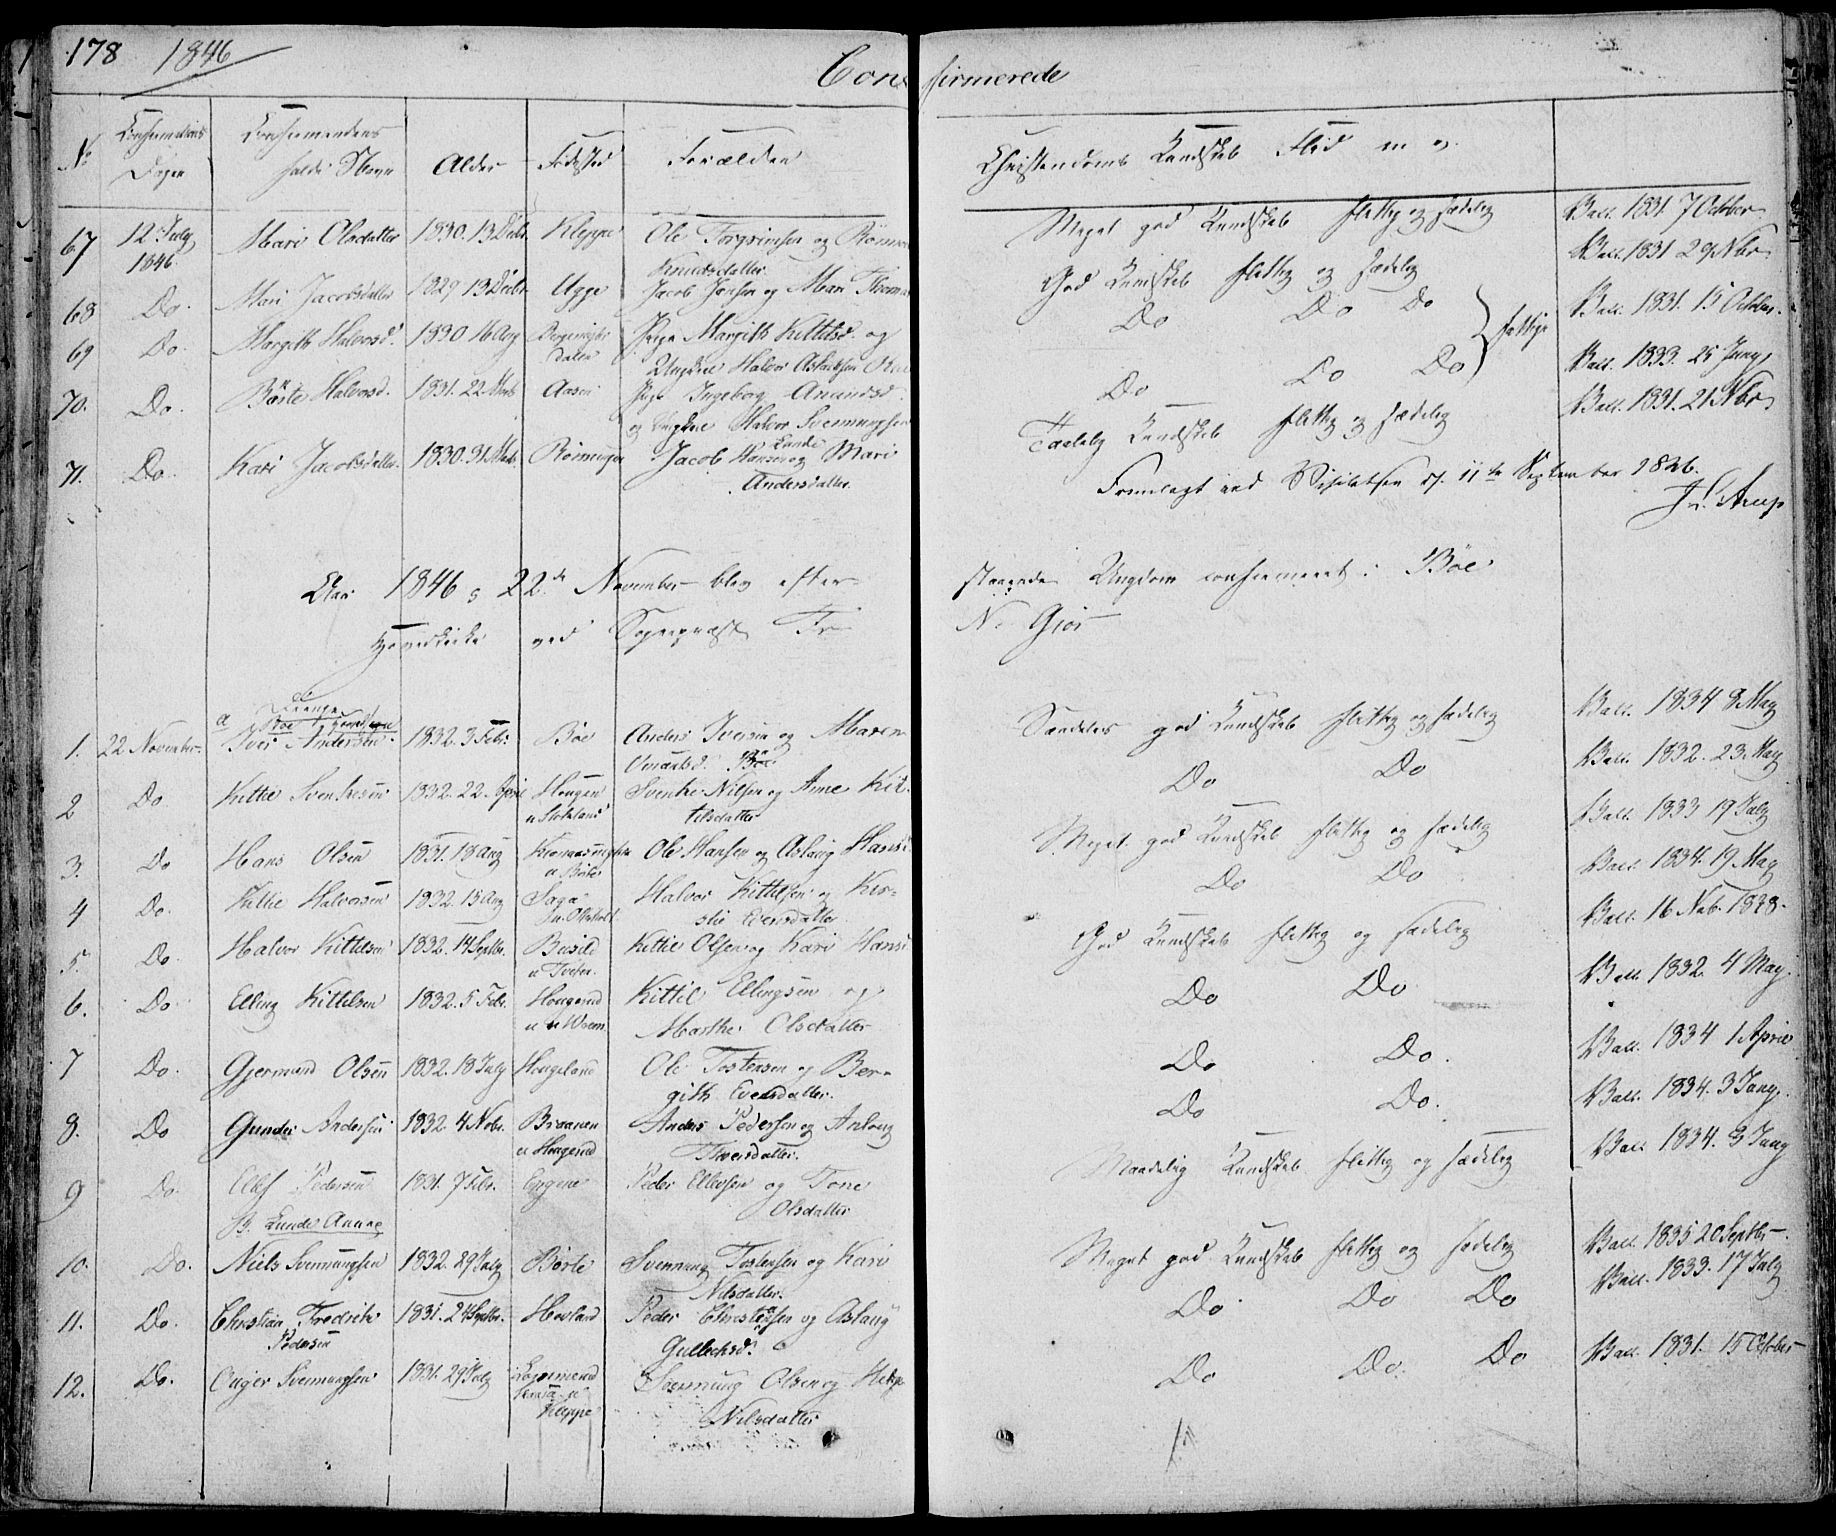 178 1846
Confirmerede
No Confirmations Dagen Confirmandens fulde Navn Alder Fødested Forældre Christendoms Kundskab Flid m v.
67 12 July 1846 Mari Olsdatter 1830. 13 Decbr Kleppe Ole Torgrimsen og
Knudsdatter Meget god Kundskab flittig og sædelig Vacc. 1831 7 October
68 Do. Mari Jacobsdatter 1829 13 Decbr Ugge Jacob Jensen og Mari
God Kundskab flittig og sædelig Vacc. 1831 29 Nbr.
69 Do. Margith Halvorsd. 1830 16 Aug Pige Margith Kittilsd. og
Ungkarl Halvor Aslaksen Do Do Do fattige Vacc. 1831. 15 October.
70. Do. Börte Halvorsd. 1831. 22 Aasen Pige Ingeborg Amundsd.
og Ungkarl Halvor Svennungsen Do Do Do Vacc. 1833. 25 Juny
71. Do. Kari Jacobsdatter. 1830. 31 Jacob Hansen Lunde og Mari
Andersdatter. Taalelig Kundskab flittig og sædelig Vacc. 1831. 21 Nbr
Fremlagt ved Visitatsen d. 11te September 1846.
J. L. Arup
Aar 1846 d 22de November blev efter-
staaende Ungdom confirmeret i Böe
Hovedkirke ved Sognepræst Fr
N. Gjör
Drenge
1. 22 November. Iver Andersen 1832. 3 Febr. Böe Anders Iversen og Maren
Særdeles god Kundskab flittig og sædelig Vacc. 1834 8 May
2 Do Kittil Svenkesen 1832. 22. April Haugen u Stokland Svenke Nilsen og Anne Kit-
tilsdatter Do Do Vacc. 1832. 23. May
3. Do Hans Olsen 1831. 18 Aug Ole Hansen og Aslaug Hansd.
Meget god Kundskab flittig og sædelig Vacc. 1833 19 July
4 Do. Kittil Halvorsen 1832. 15 Aug Halvor Kittilsen og Kir-
stie Evensdatter Do Do Vacc. 1834. 19 May
5. Do. Halvor Kittilsen 1832. 14 Septbr. Kittil Olsen og Kari Hansd.
God Kundskab flittig og sædelig Vacc. 16 Nob. 1838.
6. Do Elling Kittilsen 1832. 5 Febr. Haugerud Kittil Ellingsen og
Marthe Olsdatter Do Do Vacc. 1832. 4 May.
7 Do. Gjermund Olsen 1832. 18 July Haugeland Ole Tostensen og Ber-
gith Evensdatter. Do Do. Vacc. 1834 1 April
8. Do Gunder Andersen 1832. 4 Nobr. Braanen u Haugerud Anders Pedersen og Anlaug
Thorsdatter. Do Do. Vacc. 1834. 3 Juny.
9 Do. Ellef Pedersen 1831. 7 Febr. Eggene Peder Ellevsen og Tone
Olsdatter Maadelig Kundskab flittig og sædelig Vacc. 1834. 3 Juny
B. Lunde Annex
10. Do. Niels Svennungsen 1832. 29 July Börte Svennung Tostensen og Kari
Nilsdatter. Meget god Kundskab flittig og sædelig Vacc. 1835 20 Septbr.
11. Do. Christian Fredrik Pedersen 1831. 24 Septbr. Hovland Peder Christensen og Aslaug
Gullechsd. Do Do Do Vacc. 1833. 17 July
12. Do. Svennungsen 1831. 29 July u Kleppe Svennung Olsen og
Nilsdatter Do Do. Do Vacc. 1831. 15 October